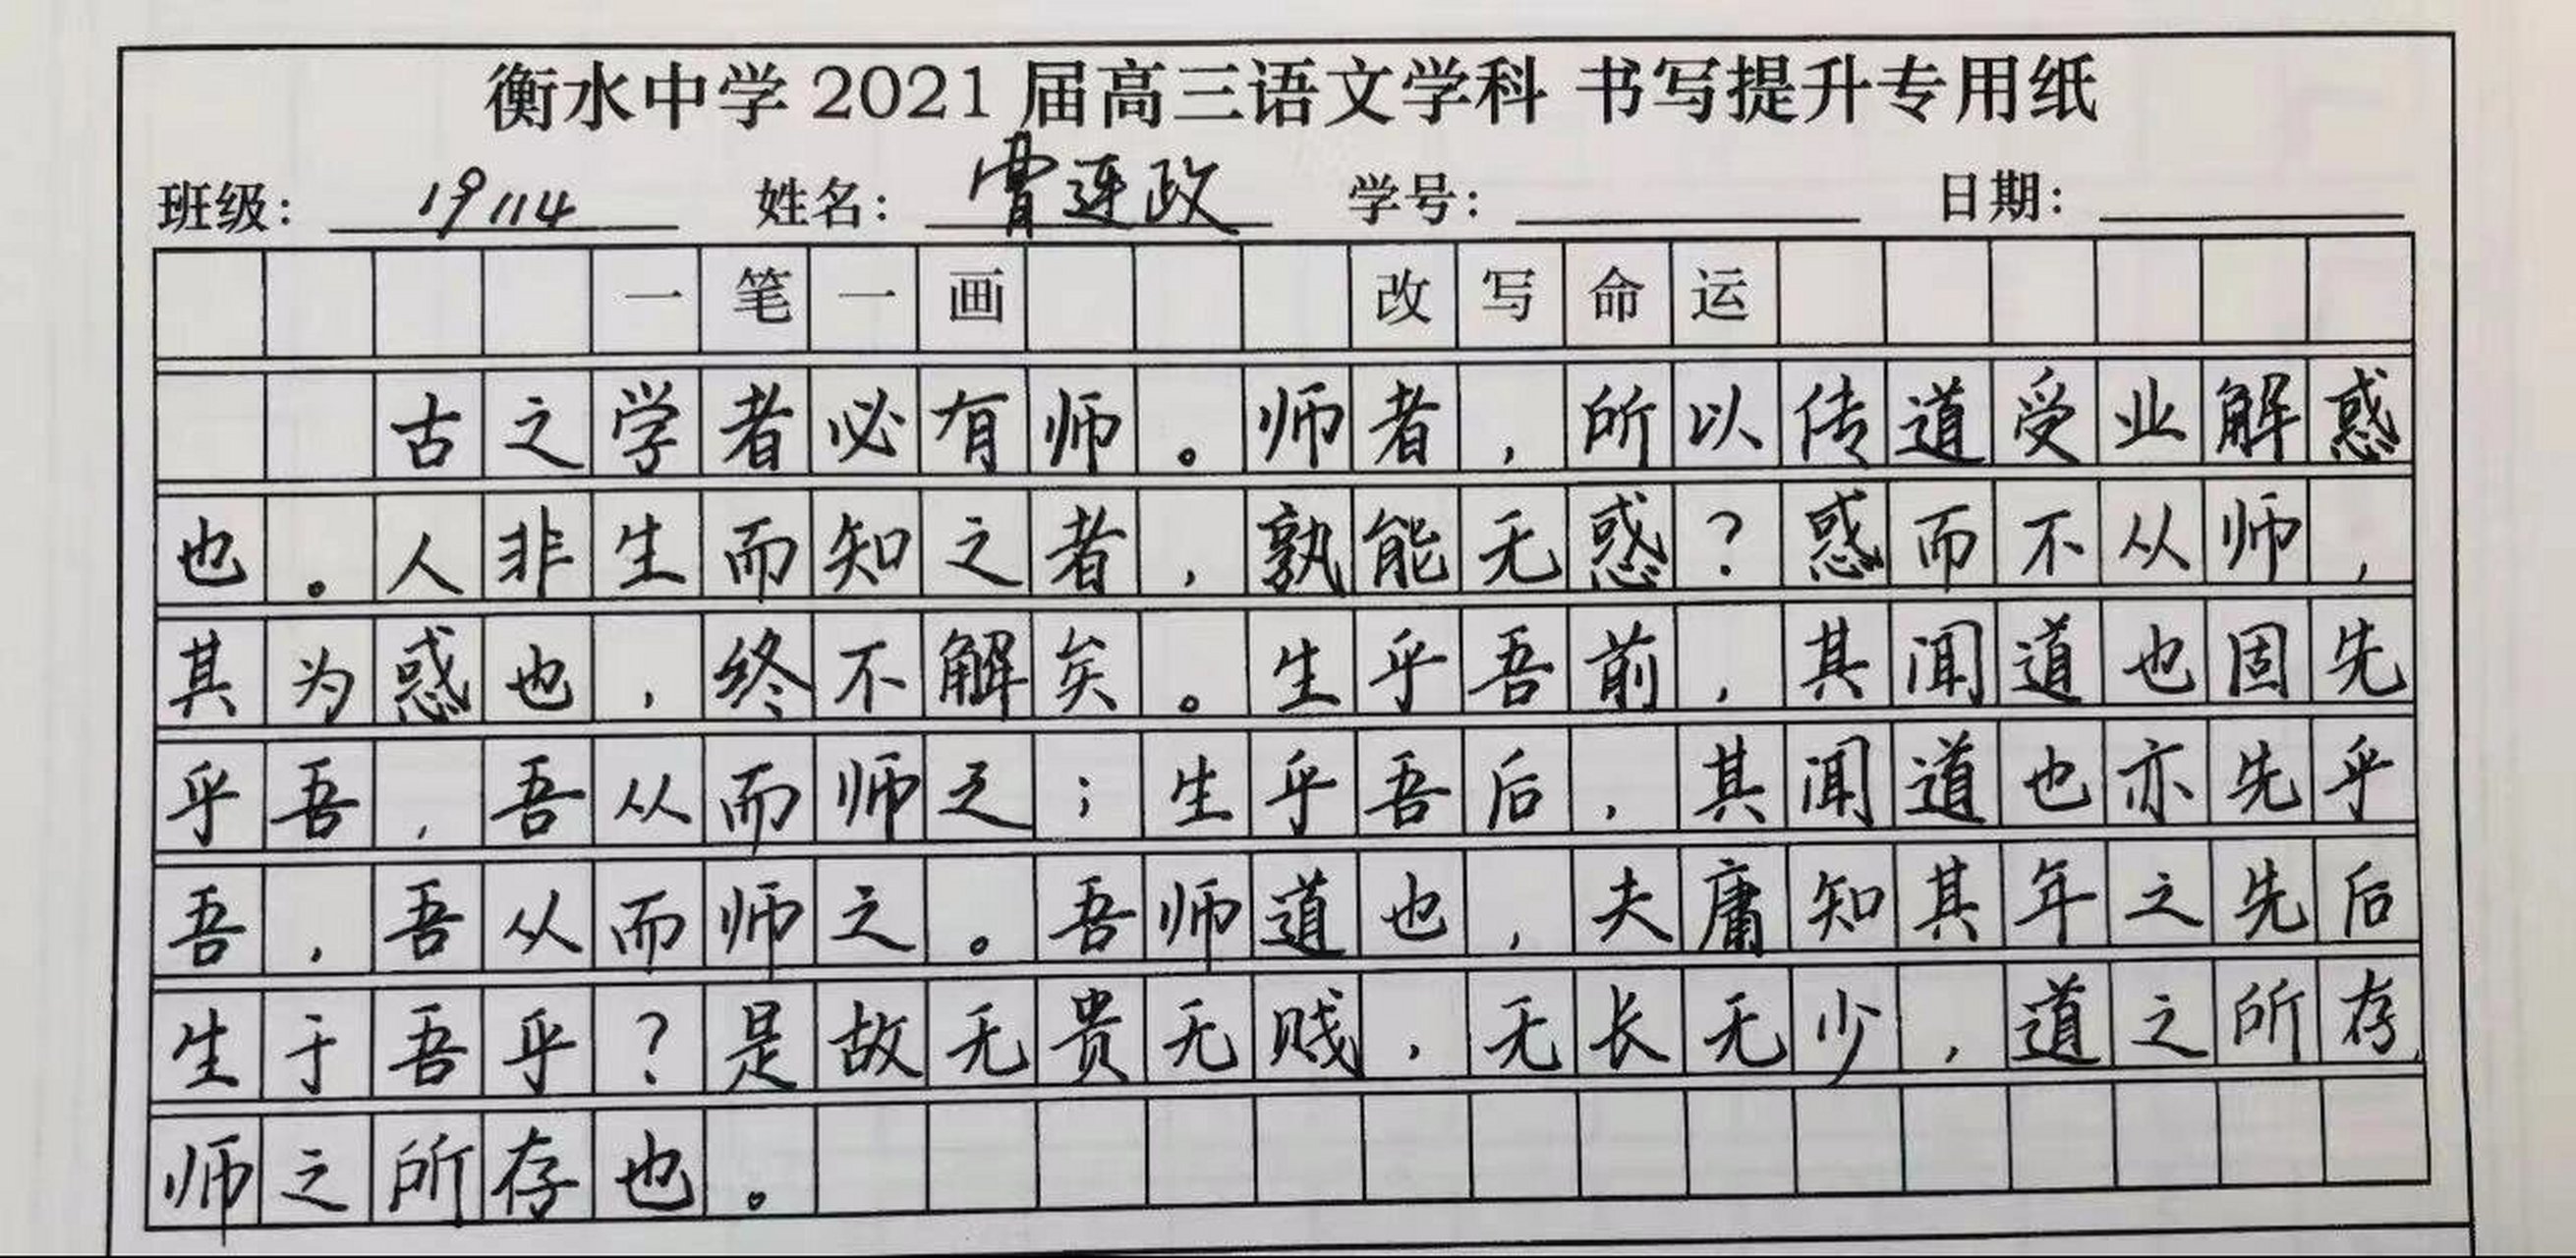 衡水中学 2021 届高三语文学科 书写提升专用纸
班级: 19114 姓名: 曹连政 学号: 日期:
一笔一画 改写命运
古之学者必有师。师者,所以传道受业解惑
也。人非生而知之者,孰能无惑?惑而不从师,
其为惑也,终不解矣。生乎吾前,其闻道也固先
乎吾,吾从而师之;生乎吾后,其闻道也亦先乎
吾,吾从而师之。吾师道也,夫庸知其年之先后
生于吾乎?是故无贵无贱,无长无少,道之所存,
师之所存也。